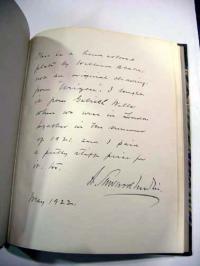 This is a hand colored
plate by William Blake
not an original drawing
from "Urizen". I bought
it from Gabriel Wells
when we were in London
together in the summer
of 1921 and I paid
a pretty stiff price for
it, too.
A. Edward Newton
May 1922.